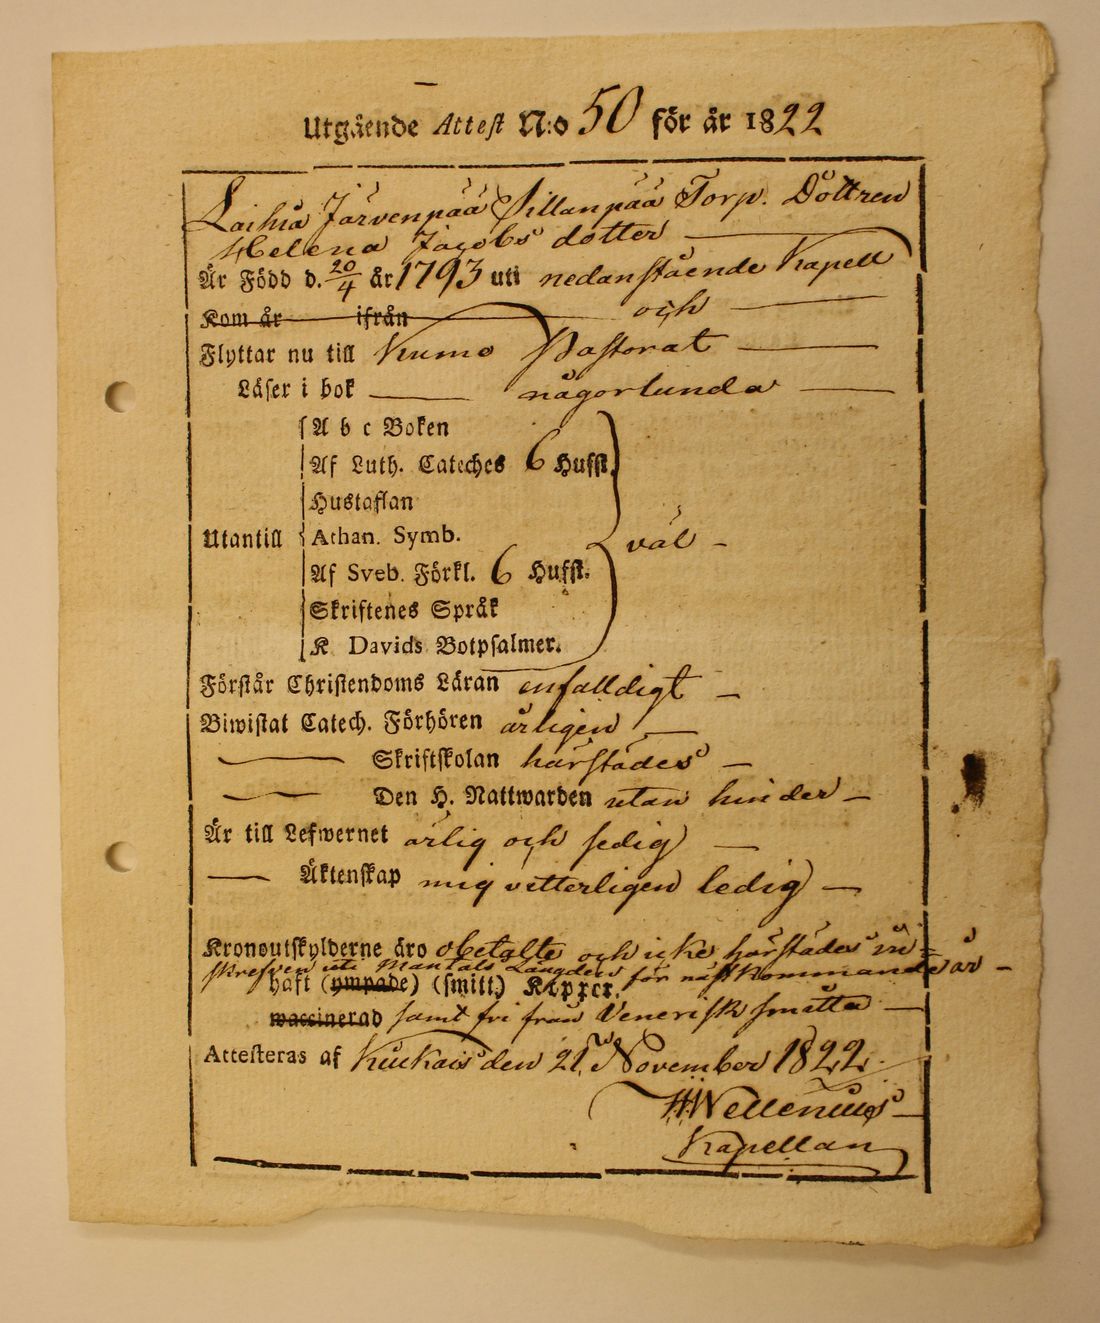 Utgående Attest N:o 50 för år 1822
Laihia Järvenpää Sillanpää Torp. Dottren
Helena Jacobs dotter
Är Född d. 20/4 år 1793 uti nedanstående Kapell
Kom år ifrån och
Flyttar nu till Kumo Pastorat
Läser i bok någorlunda
A b c Boken
Af Luth. Cateches 6 Hufst.
Hustaflan
Utantill Athan. Symb. väl
Af Sveb. Förkl. 6 Hufst.
Skriftenes Språk
K Davids Botpsalmer.
Förstår Christendoms Läran enfalldigt
Biwistat Catech. Förhören årligen
Skriftskolan härstädes
Den H. Nattwarden utan hinder
Är till Lefwernet ärlig och sedig
Äktenskap mig vetterligen ledig
Kronoutskylderne äro obetalte och icke härstädes in=
skrefven uti Mantals Längden för nästkommande år
haft (ympade) (smitt.) Kopper.
waccinerad samt fri från Venerisk smitta
Attesteras af Kiukais den 21 November 1822
Wellenius
Kapellan